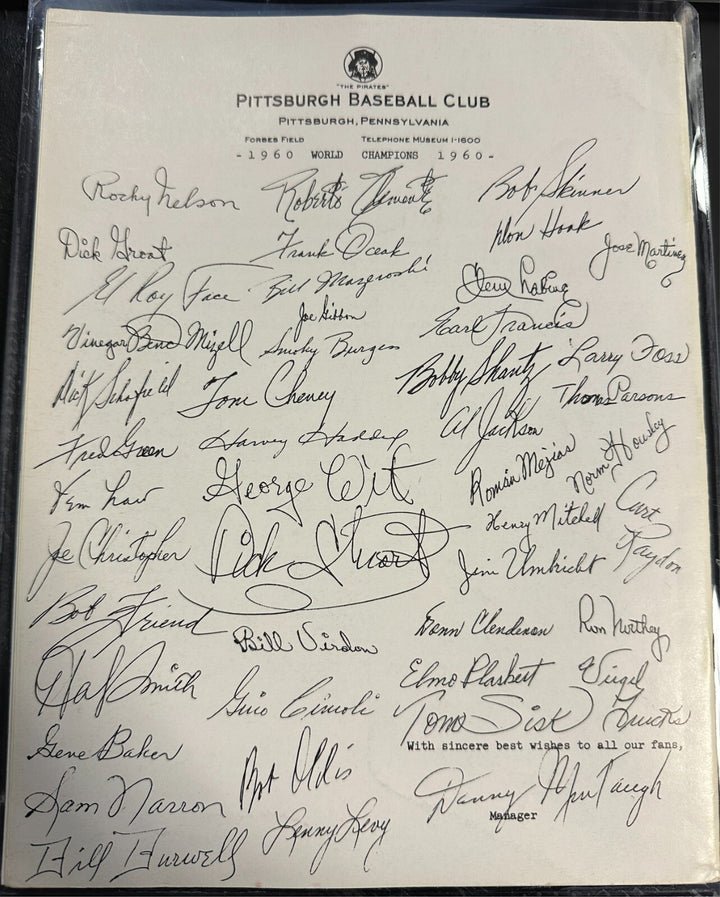 "THE PIRATES"
PITTSBURGH BASEBALL CLUB
PITTSBURGH, PENNSYLVANIA
FORBES FIELD TELEPHONE MUSEUM 1-1600
-1960 WORLD CHAMPIONS 1960-
Rocky Nelson Roberto Clemente Bob Skinner
Dick Groat Frank Oceak Don Hoak Jose Martinez
El Roy Face Bill Mazeroski Clem Labine
Vinegar Bend Mizell Joe Gibbon Earl Francis
Smoky Burgess Bobby Shantz Larry Foss
Dick Schofield Tom Cheney Thomas Parsons
Fred Green Harvey Haddix Al Jackson
Vern Law George Witt Román Mejias Norm Housley
Henry Mitchell Curt Raydon
Joe Christopher Dick Stuart Jim Umbricht
Bob Friend Bill Virdon Donn Clendenon Ron Northey
Hal Smith Gino Cimoli Elmo Plaskett Virgil Trucks
Tom Sisk
With sincere best wishes to all our fans,
Gene Baker Bob Oldis
Sam Narron Lenny Levy Danny Murtaugh
Manager
Bill Burwell